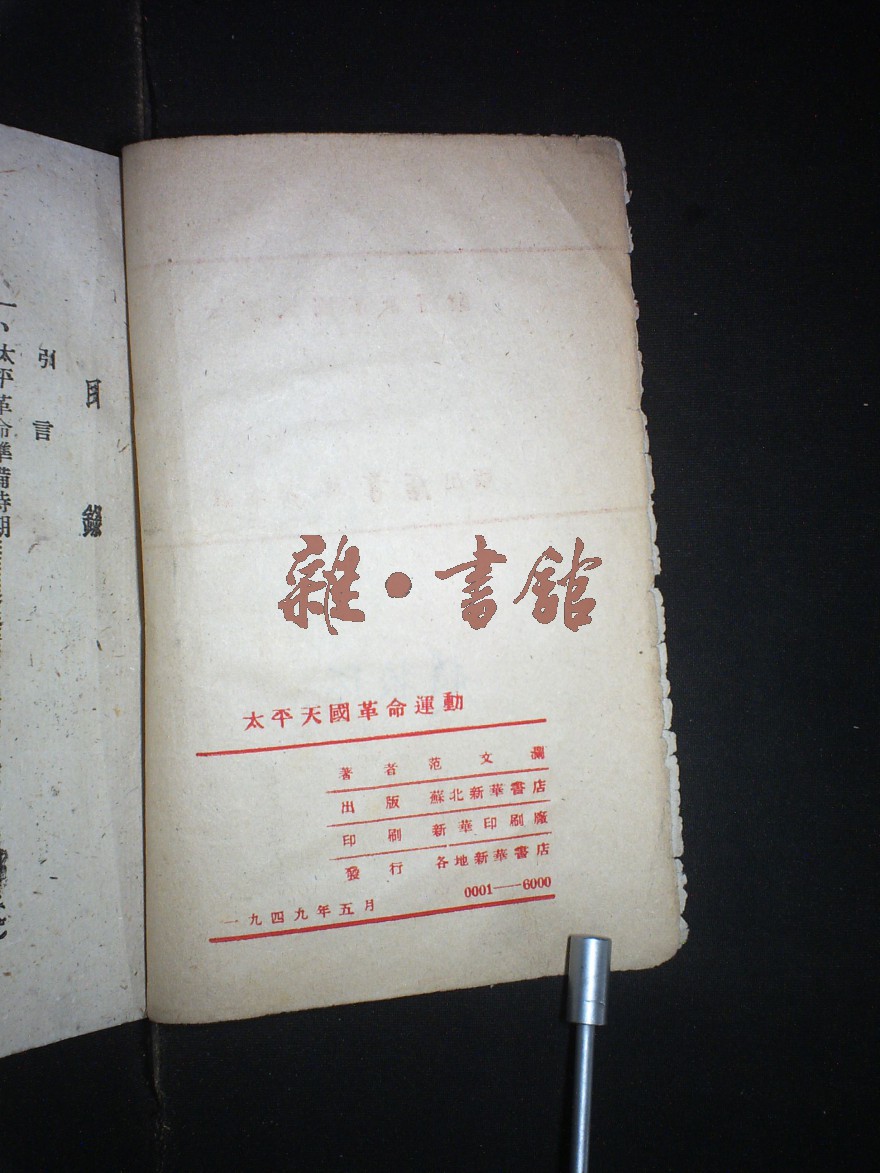 目錄
引言
一、太平革命準備時期
雜·書館
太平天國革命運動
著者 范文瀾
出版 蘇北新華書店
印刷 新華印刷廠
發行 各地新華書店
一九四九年五月 0001—6000